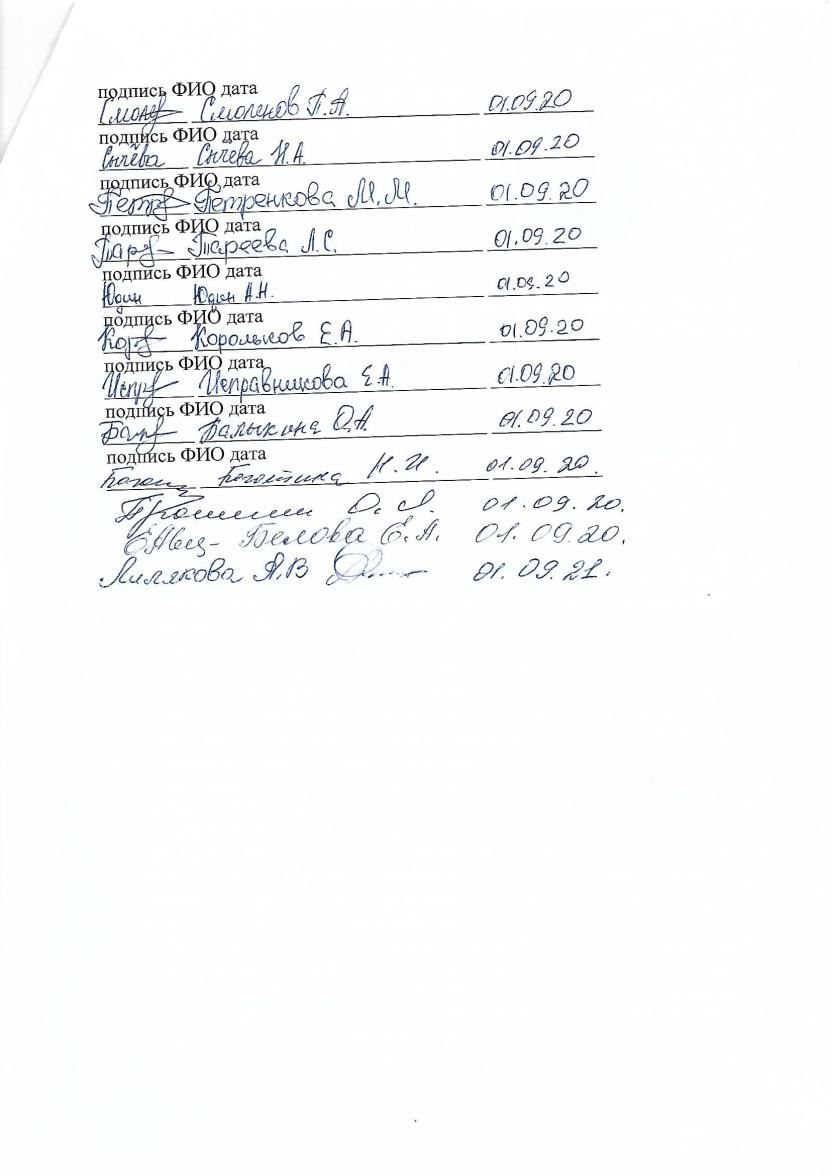 подпись ФИО дата
Смол Смоленов П.А. 01.09.20
подпись ФИО дата
Сычёва Сычева Н.А. 01.09.20
подпись ФИО дата
Петр Петренкова М.М. 01.09.20
подпись ФИО дата
Тар Тареева Л.С. 01.09.20
подпись ФИО дата
Юдин Юдин А.Н. 01.09.20
подпись ФИО дата
Кор Корольков Е.А. 01.09.20
подпись ФИО дата
Испр Исправникова Е.А. 01.09.20
подпись ФИО дата
Балыкина О.А. 01.09.20
подпись ФИО дата
Н.И. 01.09.20.
01.09.20.
Белова Е.А. 01.09.20.
Лилякова А.В 01.09.21.